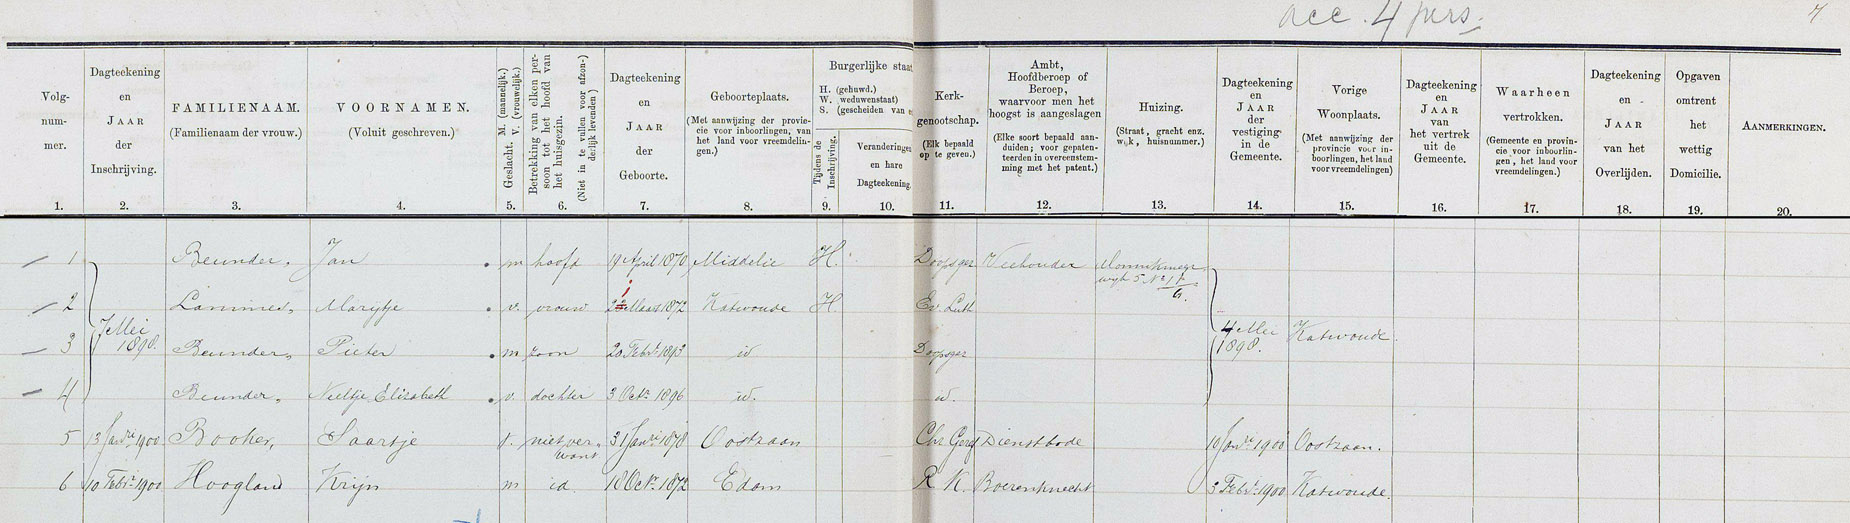 acc. 4 pers. 7
Volgnummer. Dagteekening en JAAR der Inschrijving. FAMILIENAAM. (Familienaam der vrouw.) VOORNAMEN. (Voluit geschreven.) Geslacht. M. (mannelijk.) V. (vrouwelijk.) Betrekking van elken persoon tot het hoofd van het huisgezin. (Niet in te vullen voor afzonderlijk levenden) Dagteekening en JAAR der Geboorte. Geboorteplaats. (Met aanwijzing der provincie voor inboorlingen, van het land voor vreemdelingen.) Burgerlijke staat H. (gehuwd.) W. (weduwenstaat) S. (gescheiden van Tijdens de Inschrijving. Veranderingen en hare Dagteekening. Kerkgenootschap. (Elk bepaald op te geven.) Ambt, Hoofdberoep of Beroep, waarvoor men het hoogst is aangeslagen (Elke soort bepaald aanduiden; voor gepatenteerden in overeenstemming met het patent.) Huizing. (Straat, gracht enz. wijk, huisnummer.) Dagteekening en JAAR der vestiging in de Gemeente. Vorige Woonplaats. (Met aanwijzing der provincie voor inboorlingen, het land voor vreemdelingen) Dagteekening en JAAR van het vertrek uit de Gemeente. Waarheen vertrokken. (Gemeente en provincie voor inboorlingen, het land voor vreemdelingen.) Dagteekening en JAAR van het Overlijden. Opgaven omtrent het wettig Domicilie. AANMERKINGEN.
1. 2. 3. 4. 5. 6. 7. 8. 9. 10. 11. 12. 13. 14. 15. 16. 17. 18. 19. 20.
1 Beunder, Jan m hoofd 19 April 1870 Middelie H. Doopsgez Veehouder
wyk 5 No
2 Lammes, Marijtje v. vrouw Maart 1872 Katwoude H. Ev. Luth
7 Mei 1898. 4 Mei 1898. Katwoude.
3 Beunder, Pieter m zoon 20 Febr. 1893 id Doopsgez
4 Beunder, Neeltje Elisabeth v. dochter 3 Octr. 1896 id. id.
5 13 Janri 1900 Booker, Saartje v. niet verwant 31 Janri 1878 Oostzaan Chr Geref Dienstbode 10 Janri 1900 Oostzaan.
6 10 Febri 1900 Hoogland Krijn m id 18 Octr. 1872 Edam R K. Boerenknecht 3 Febr. 1900 Katwoude.